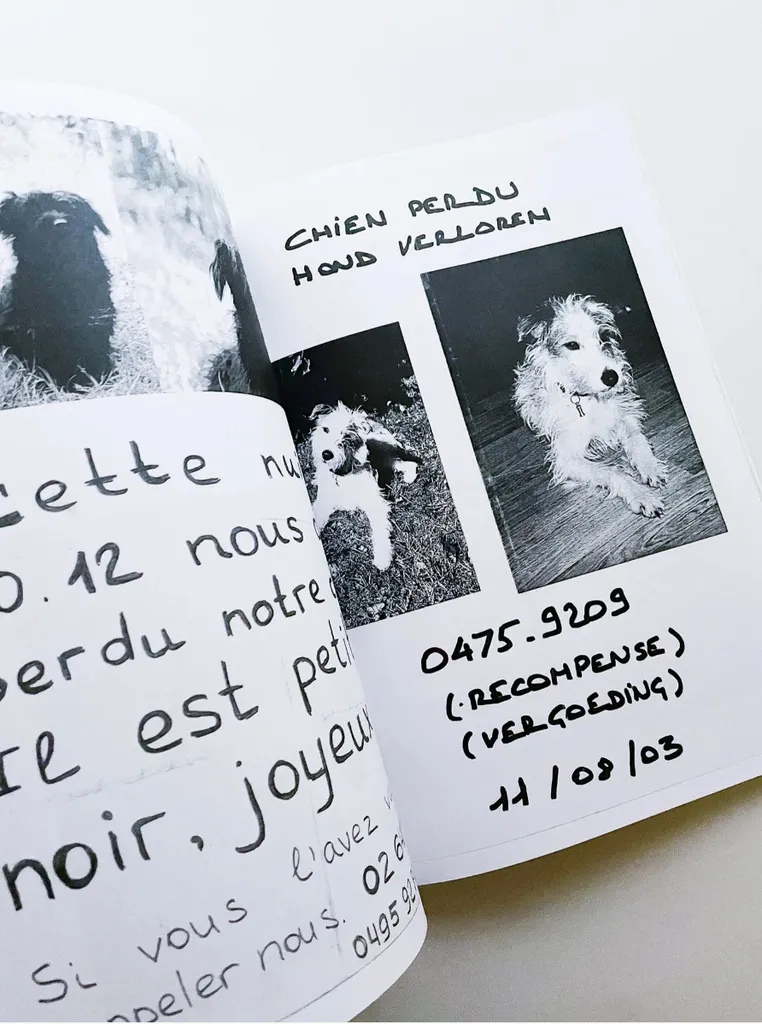 Cette
0.12 nous
perdu notre
Il est petit
noir, joyeux
Si vous l'avez
appeler nous. 02 6
0495 92
CHIEN PERDU
HOND VERLOREN
0475.9209
(.RECOMPENSE)
(VERGOEDING)
11/08/03